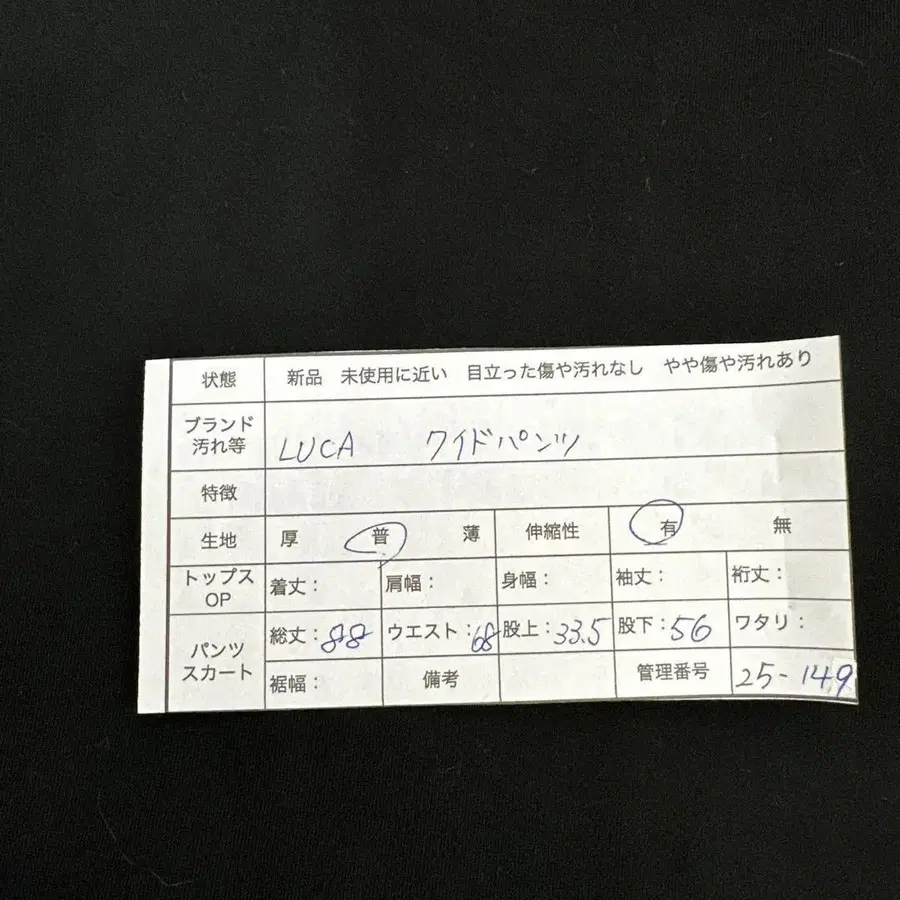 状態 新品 未使用に近い 目立った傷や汚れなし やや傷や汚れあり
ブランド
汚れ等 LUCA ワイドパンツ
特徴
生地 厚 普 薄 伸縮性 有 無
トップス
OP 着丈： 肩幅： 身幅： 袖丈： 裄丈：
パンツ
スカート 総丈：88 ウエスト：68 股上：33.5 股下：56 ワタリ：
裾幅： 備考 管理番号 25-149